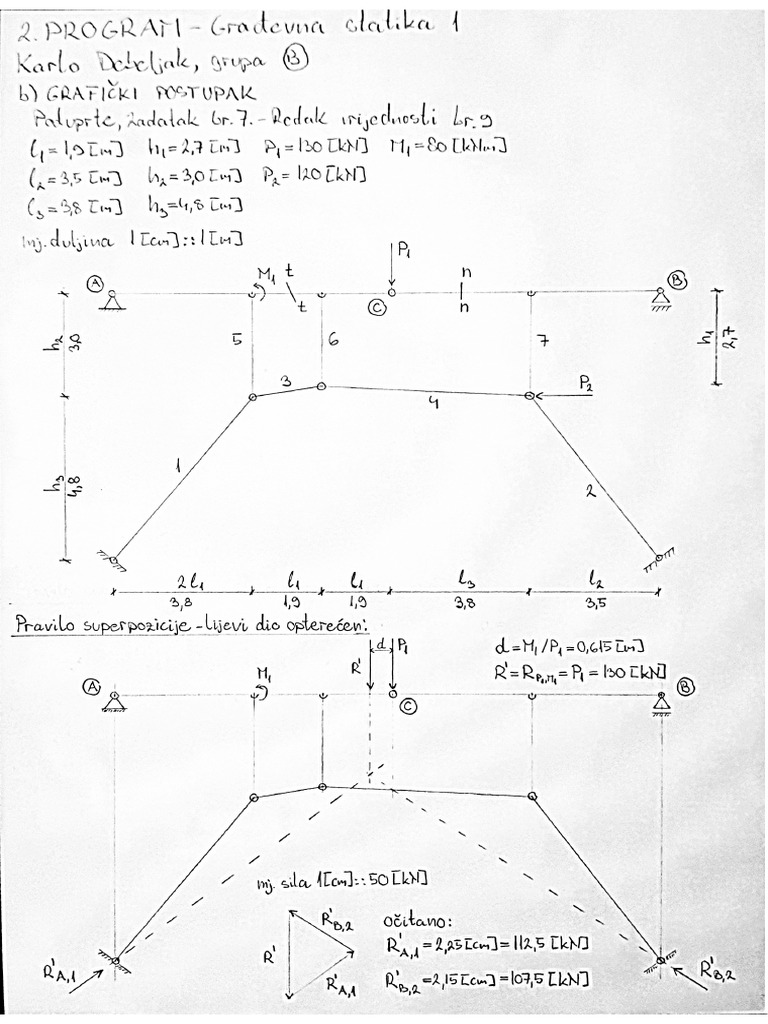 2. PROGRAM - Građevna statika 1
Karlo Debeljak, grupa B
b) GRAFIČKI POSTUPAK
Patuprte, zadatak br. 7. - Redak vrijednosti br. 9
l₁ = 1,9 [m] h₁ = 2,7 [m] P₁ = 130 [kN] M₁ = 80 [kNm]
l₂ = 3,5 [m] h₂ = 3,0 [m] P₂ = 120 [kN]
l₃ = 3,8 [m] h₃ = 4,8 [m]
mj. duljina 1 [cm] :: 1 [m]
P₁
A M₁ t n B
t C n
h₂ 3,0 5 6 7 h₁ 2,7
3 P₂
4
1
h₃ 4,8 2
2l₁ l₁ l₁ l₃ l₂
3,8 1,9 1,9 3,8 3,5
Pravilo superpozicije - lijevi dio opterećen:
d P₁ d = M₁ / P₁ = 0,615 [m]
R' R' = R P₁,M₁ = P₁ = 130 [kN]
A M₁ B
C
mj. sila 1 [cm] :: 50 [kN]
R'B,2 očitano:
R' R'A,1 = 2,25 [cm] = 112,5 [kN]
R'A,1 R'A,1 R'B,2 = 2,15 [cm] = 107,5 [kN] R'B,2